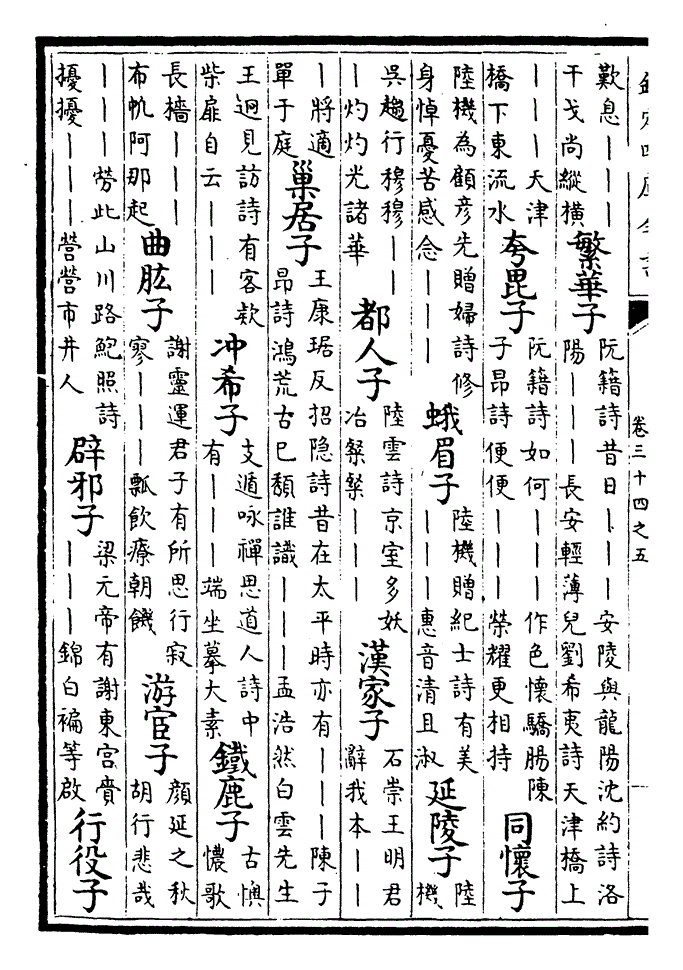 欽定四庫全書
卷三十四之五
歎息丨丨丨干戈尚縱橫 繁華子 阮籍詩昔日丨丨丨安陵與龍陽沈約詩洛陽丨丨丨長安輕薄兒劉希夷詩天津橋上
丨丨丨天津橋下東流水 夸毘子 阮籍詩如何丨丨丨作色懷驕腸陳子昂詩便便丨丨丨榮耀更相持 同懷子
陸機為顧彦先贈婦詩修身悼憂苦感念丨丨丨 蛾眉子 陸機贈紀士詩有美丨丨丨惠音清且淑 延陵子 陸機
吳趨行穆穆丨丨丨灼灼光諸華 都人子 陸雲詩京室多妖冶粲粲丨丨丨 漢家子 石崇王明君辭我本丨丨
丨將適單于庭 巢居子 王康琚反招隐詩昔在太平時亦有丨丨丨陳子昂詩鴻荒古已頽誰識丨丨丨孟浩然白雲先生
王迥見訪詩有客欵柴扉自云丨丨丨 冲希子 支遁咏禪思道人詩中有丨丨丨端坐摹大素 鐵鹿子 古懊憹歌
長檣丨丨丨布帆阿那起 曲肱子 謝靈運君子有所思行寂寥丨丨丨瓢飲療朝饑 游宦子 顔延之秋胡行悲哉
丨丨丨勞此山川路鮑照詩擾擾丨丨丨營營市井人 辟邪子 梁元帝有謝東宮賚丨丨丨錦白褊等啟 行役子